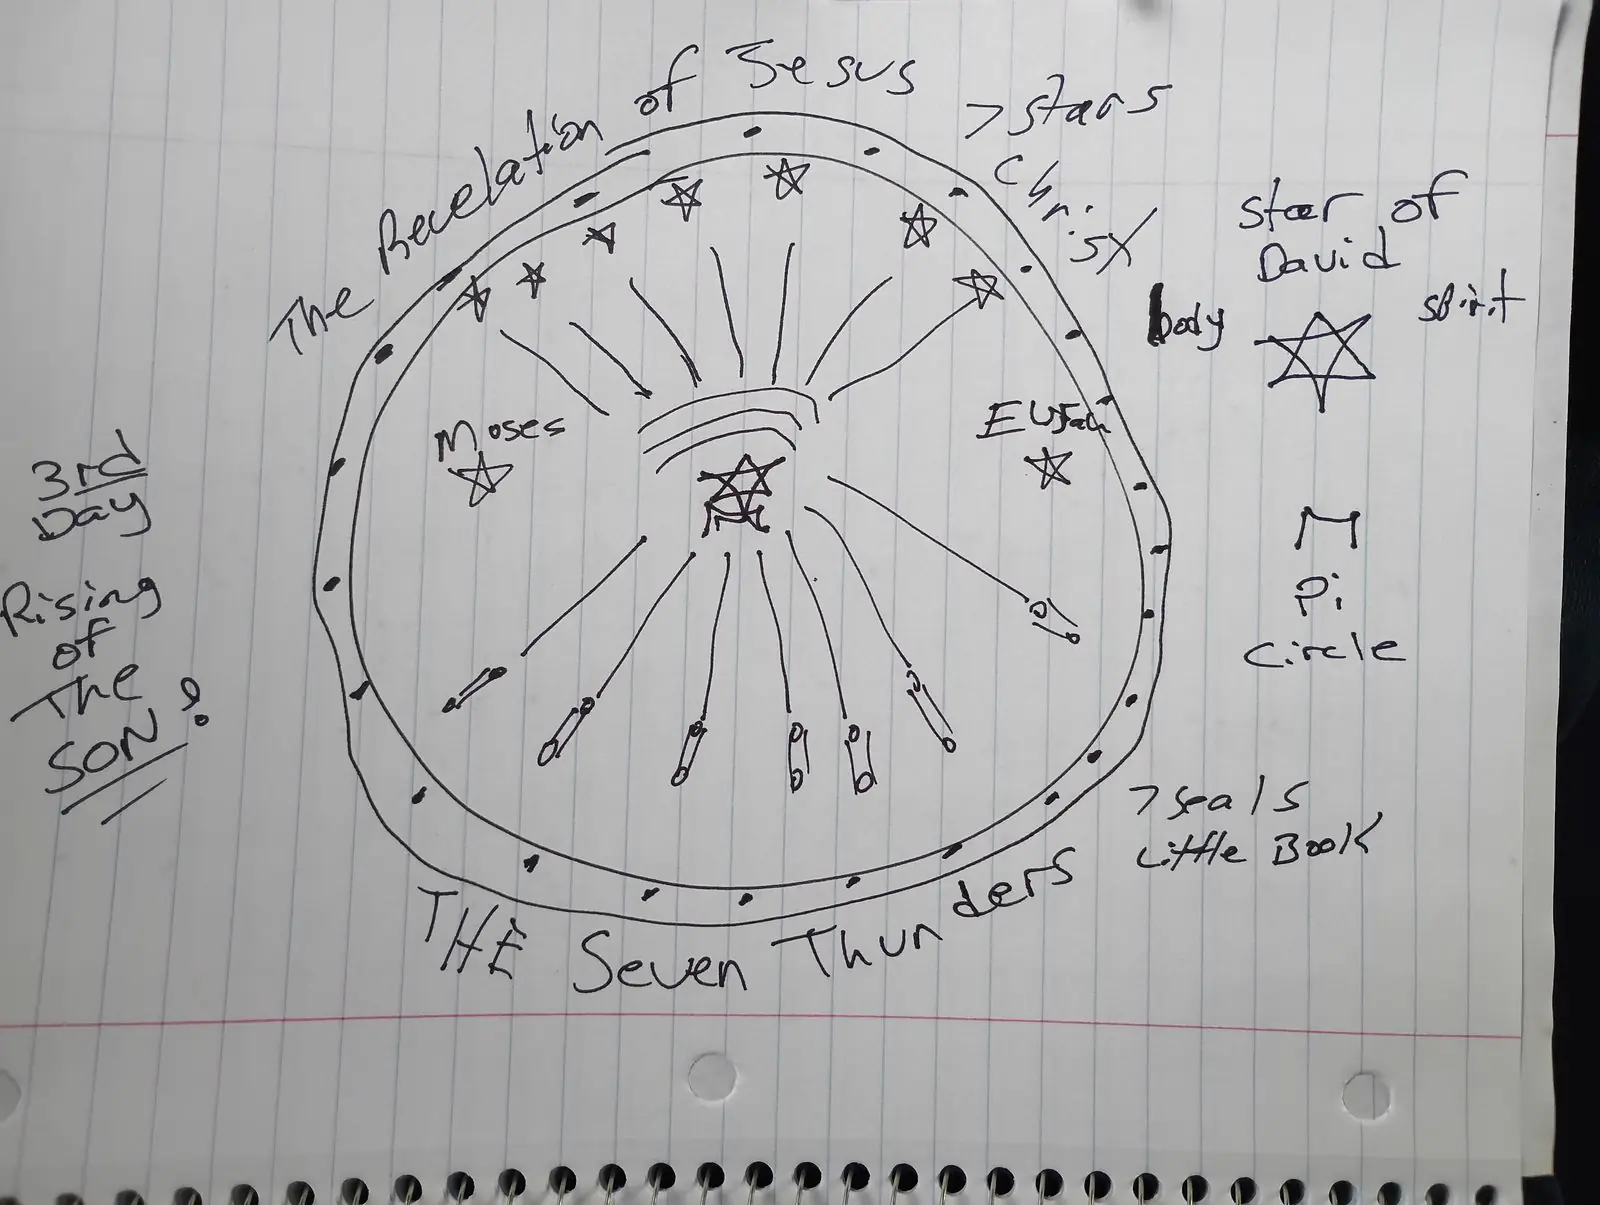 The Revelation of Jesus
Christ
7 stars
Star of
David
body
spirit
Moses
3rd
Day
Rising
of
The
SON
Pi
Circle
7 seals
Little Book
THE Seven Thunders